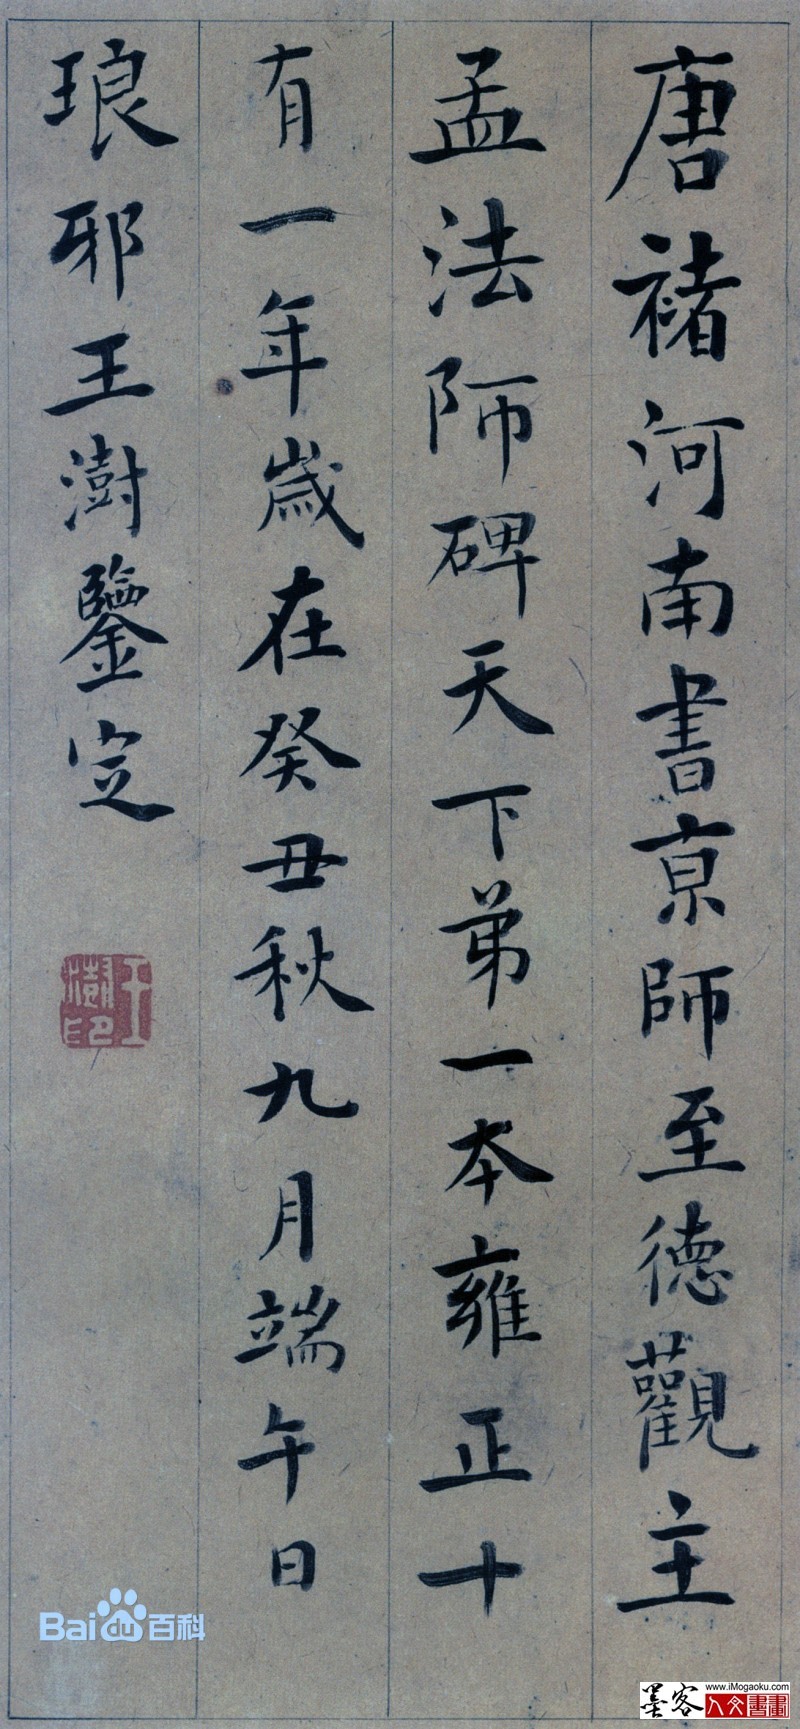 唐褚河南書京師至德觀主
孟法師碑天下弟一本雍正十
有一年歲在癸丑秋九月端午日
琅邪王澍鑒定
王澍印
Bai du 百科
墨客
www.iMogaoku.com
人文書畫